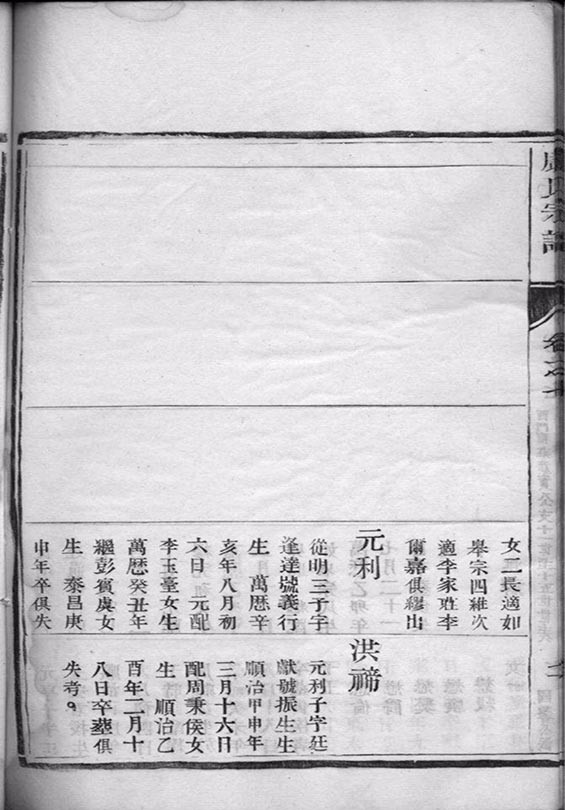 氏宗譜
卷之十
女二長適如
皋宗四維次
適李家琟李
爾嘉俱繆出
元利
從明三子字
逢達號義行
生 萬歷辛
亥年八月初
六日 元配
李玉臺女生
萬歷癸丑年
繼彭賓虞女
生 泰昌庚
申年卒俱失
洪禘
元利子字廷
獻號振生生
順治甲申年
三月十六日
配周秉侯女
生 順治乙
酉年二月十
八日卒塟俱
失考